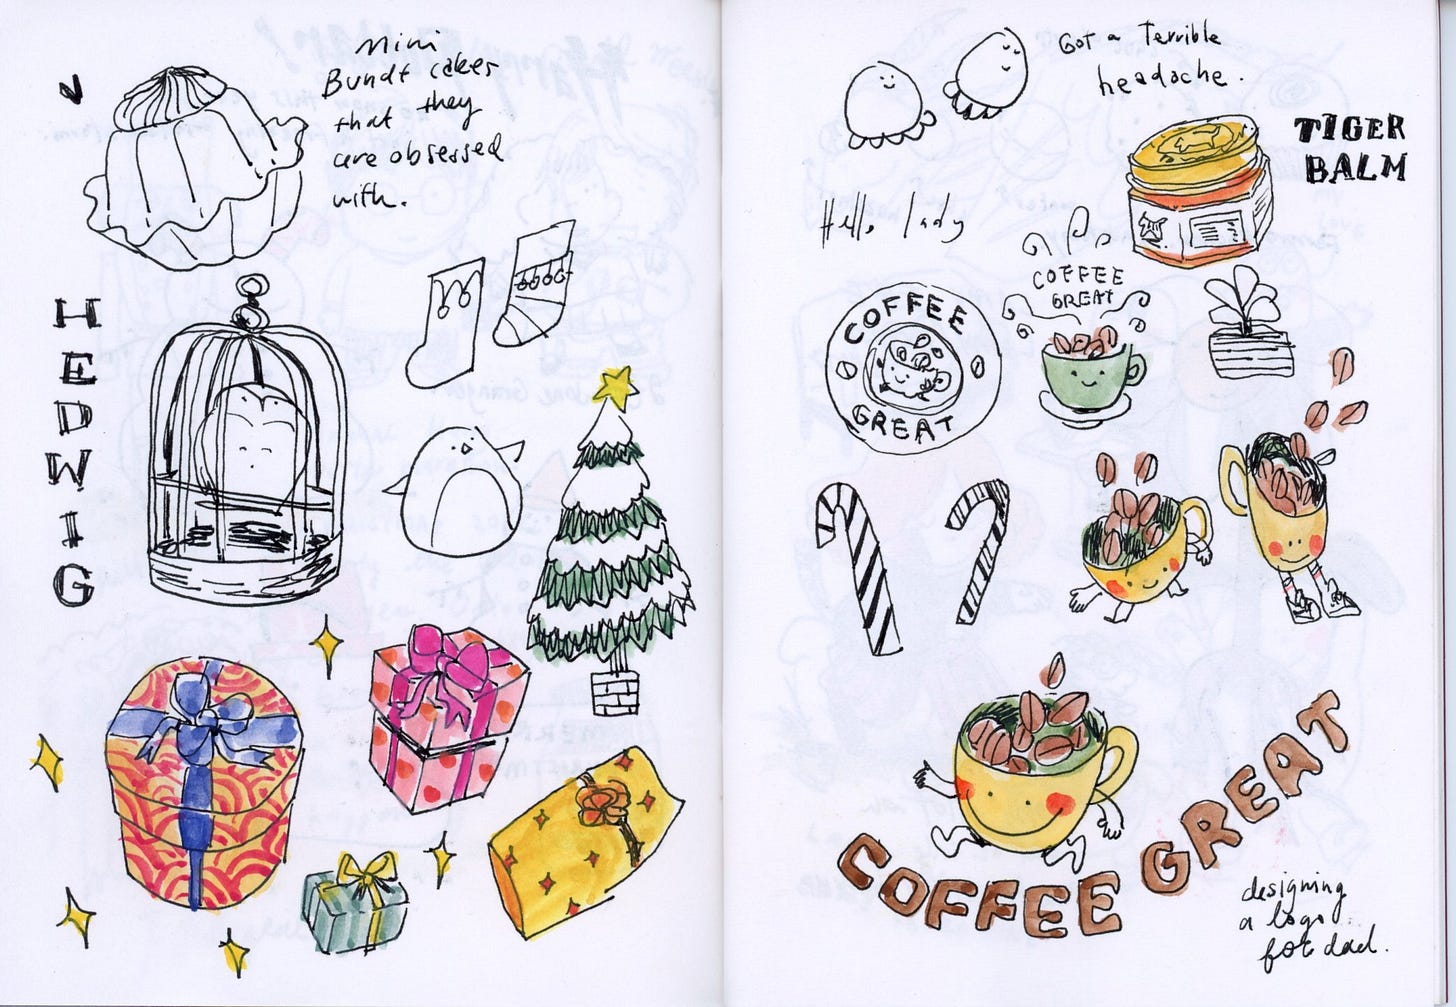 Mini
Bundt cakes
that they
are obsessed
with.
HEDWIG
Got a Terrible
headache.
TIGER
BALM
Hello lady
COFFEE
GREAT
COFFEE
GREAT
COFFEE GREAT
designing
a logo
for dad.